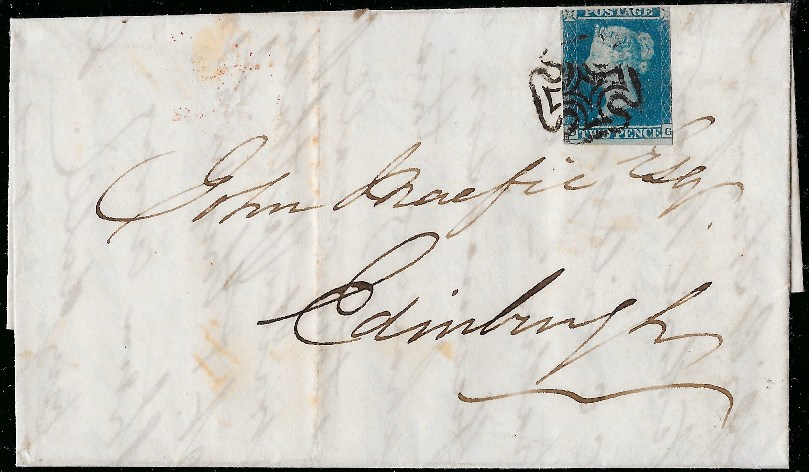 POSTAGE
TWO PENCE G
John Esq
Edinburgh